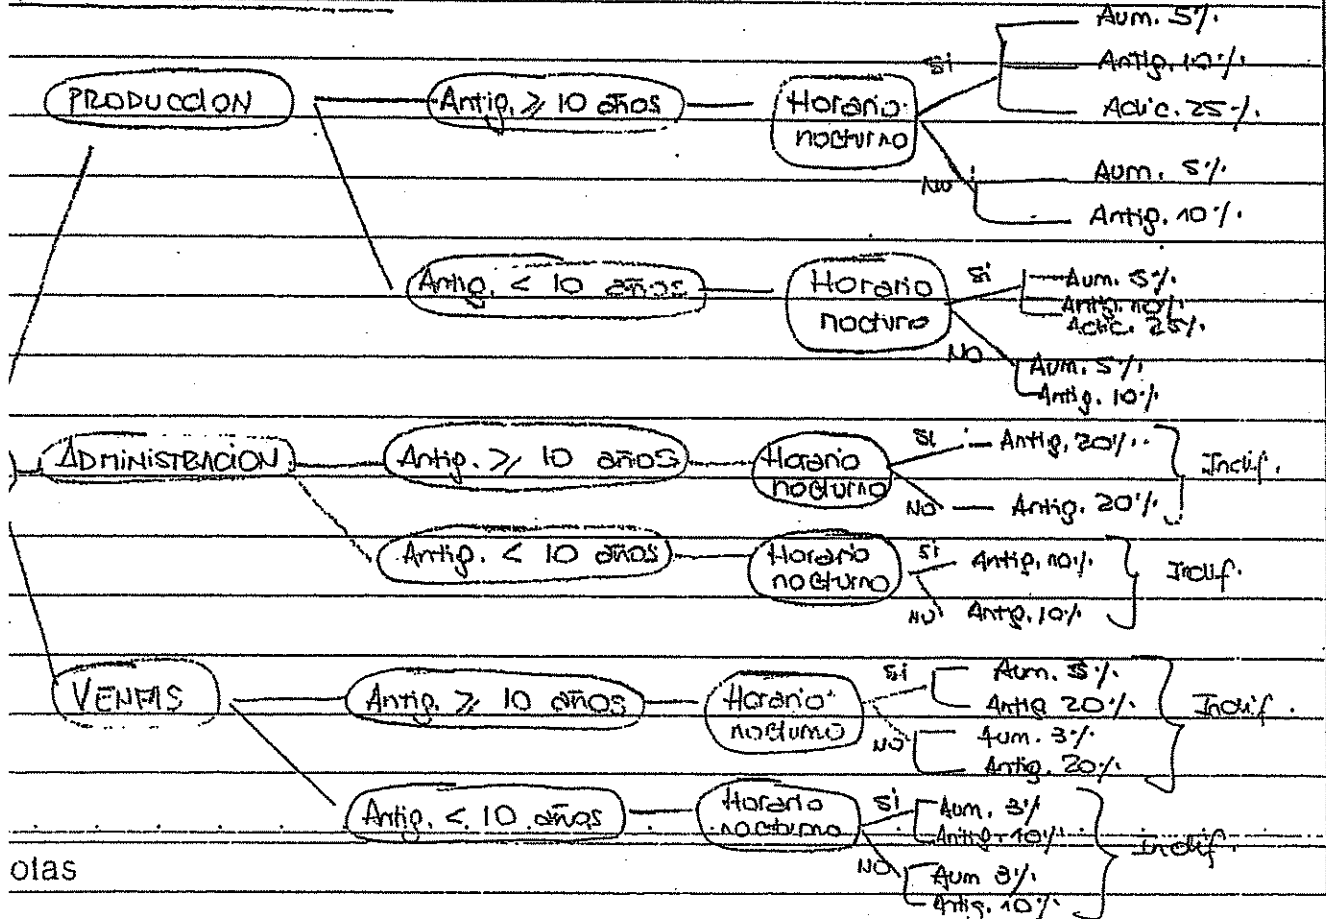 PRODUCCION
Antig. ≥ 10 años
Horario nocturno
Si
Aum. 5%
Antig. 10%
Adic. 25%
No
Aum. 5%
Antig. 10%
Antig. < 10 años
Horario nocturno
Si
Aum. 5%
Antig. 10%
Adic. 25%
NO
Aum. 5%
Antig. 10%
ADMINISTRACION
Antig. ≥ 10 años
Horario nocturno
Si
Antig. 20%
NO
Antig. 20%
Indif.
Antig. < 10 años
Horario nocturno
Si
Antig. 10%
NO
Antig. 10%
Indif.
VENTAS
Antig. ≥ 10 años
Horario nocturno
Si
Aum. 3%
Antig 20%
NO
Aum. 3%
Antig. 20%
Indif.
Antig. < 10 años
Horario nocturno
Si
Aum. 3%
Antig. 10%
NO
Aum 3%
Antig. 10%
Indif.
otas